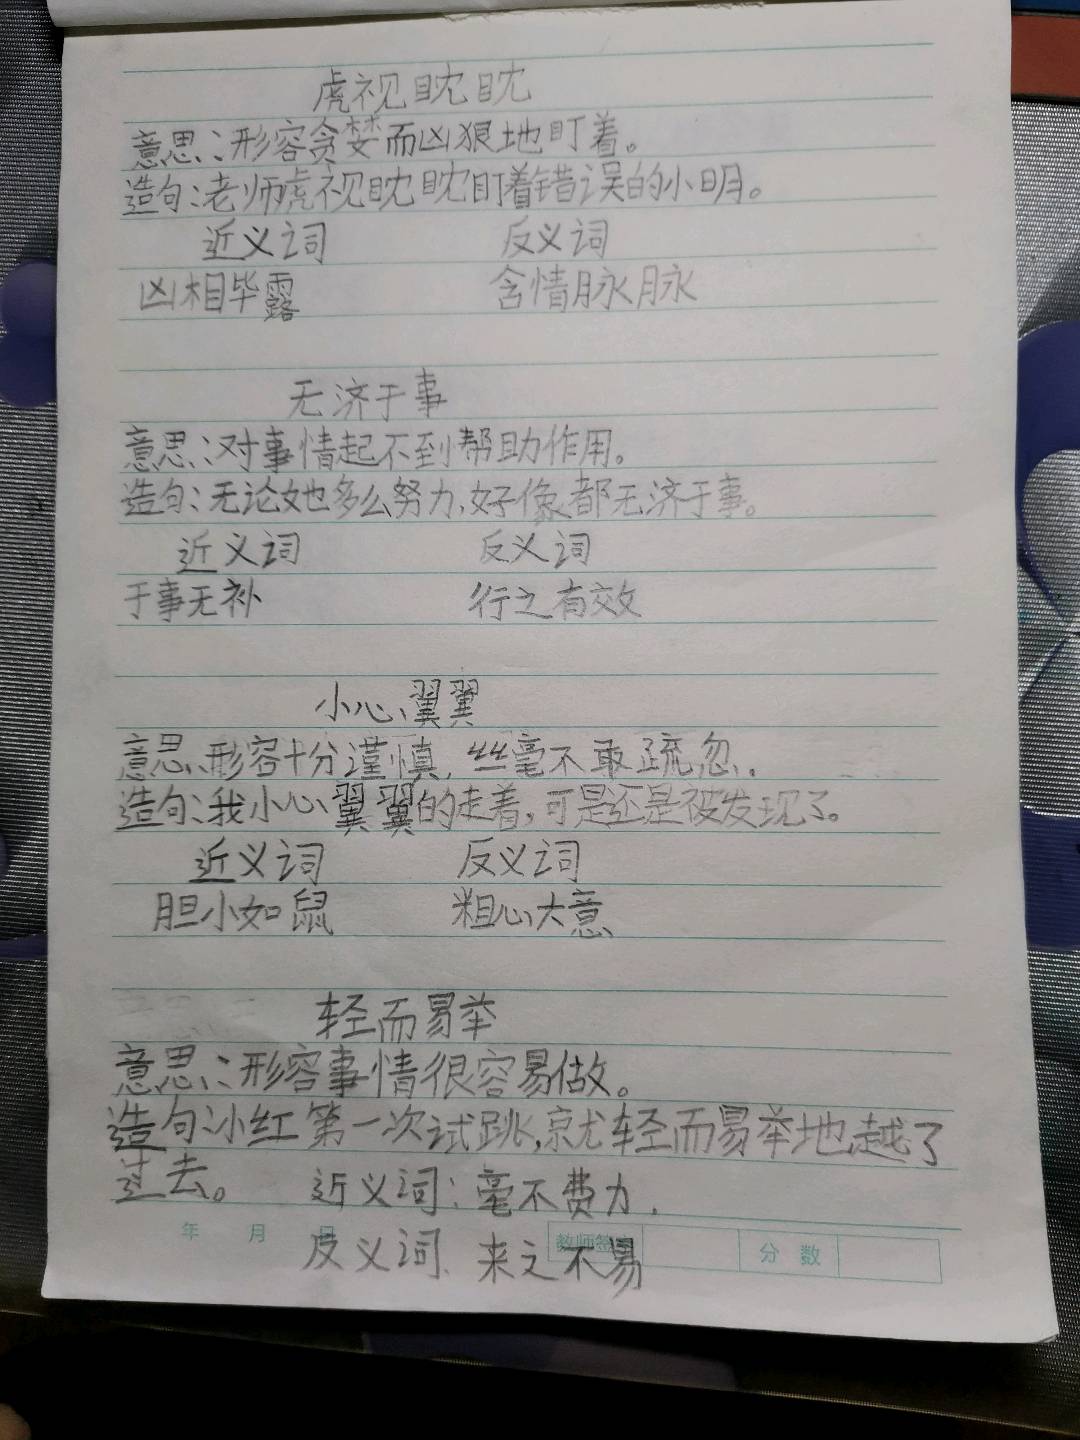 虎视眈眈
意思:形容贪婪而凶狠地盯着。
造句:老师虎视眈眈盯着错误的小明。
近义词 反义词
凶相毕露 含情脉脉
无济于事
意思:对事情起不到帮助作用。
造句:无论她多么努力,好像都无济于事。
近义词 反义词
于事无补 行之有效
小心翼翼
意思:形容十分谨慎,丝毫不敢疏忽.
造句:我小心翼翼的走着,可是还是被发现了。
近义词 反义词
胆小如鼠 粗心大意
轻而易举
意思:形容事情很容易做。
造句:小红第一次试跳,就轻而易举地越了
过去。 近义词:毫不费力.
年 月 日 教师签 分数
反义词: 来之不易